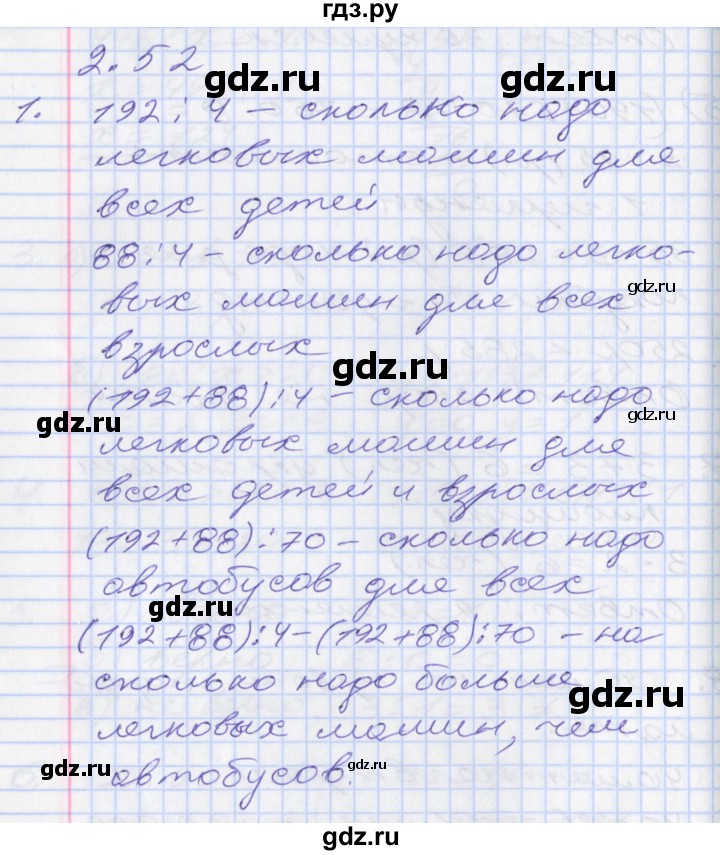 гдз.ру
2.52
gdz.ru
1. 192:4 – сколько надо
легковых машин для
gdz.ru
всех детей
88:4 – сколько надо легко-
gdz.ru
вых машин для всех
взрослых
gdz.ru
(192+88):4 – сколько надо
gdz.ru
gdz.ru
легковых машин для
всех детей и взрослых
(192+88):70 – сколько надо
автобусов для всех
gdz.ru
(192+88):4–(192+88):70 – на
сколько надо больше
gdz.ru
легковых машин, чем
gdz.ru
автобусов.
gdz.ru
gdz.ru